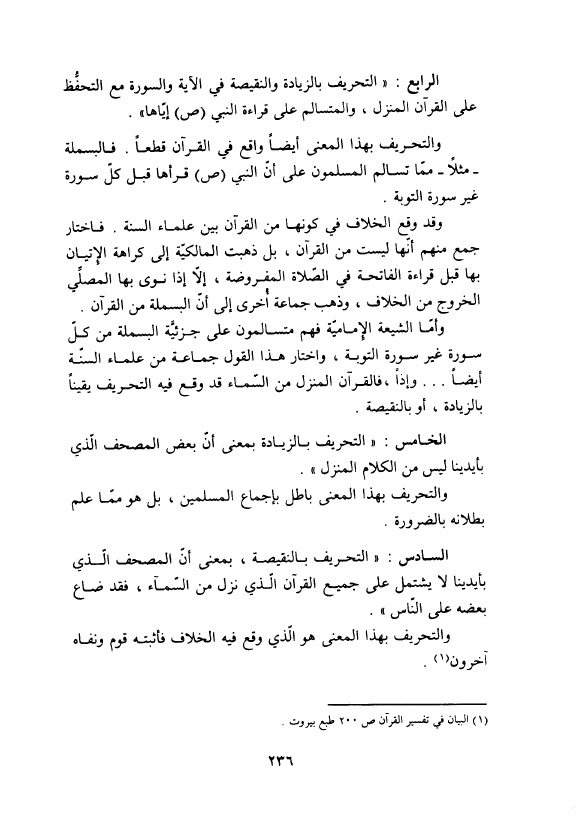 الرابع : « التحريف بالزيادة والنقيصة في الآية والسورة مع التحفُّظ
على القرآن المنزل ، والمتسالم على قراءة النبي (ص) إيّاها» .
والتحريف بهذا المعنى أيضاً واقع في القرآن قطعاً . فالبسملة
ـ مثلاً ـ ممّا تسالم المسلمون على أنّ النبي (ص) قرأها قبل كلّ سورة
غير سورة التوبة .
وقد وقع الخلاف في كونها من القرآن بين علماء السنة . فاختار
جمع منهم أنّها ليست من القرآن ، بل ذهبت المالكيّة إلى كراهة الإتيان
بها قبل قراءة الفاتحة في الصّلاة المفروضة ، إلّا إذا نوى بها المصلِّي
الخروج من الخلاف ، وذهب جماعة أُخرى إلى أنّ البسملة من القرآن .
وأمّا الشيعة الإماميّة فهم متسالمون على جزئيَّة البسملة من كلّ
سورة غير سورة التوبة ، واختار هذا القول جماعة من علماء السنّة
أيضاً . . . وإذاً ،فالقرآن المنزل من السّماء قد وقع فيه التحريف يقيناً
بالزيادة ، أو بالنقيصة .
الخامس : « التحريف بالزيادة بمعنى أنّ بعض المصحف الّذي
بأيدينا ليس من الكلام المنزل » .
والتحريف بهذا المعنى باطل بإجماع المسلمين ، بل هو ممّا علم
بطلانه بالضرورة .
السادس : « التحريف بالنقيصة ، بمعنى أنّ المصحف الّذي
بأيدينا لا يشتمل على جميع القرآن الّذي نزل من السّمآء ، فقد ضاع
بعضه على النّاس » .
والتحريف بهذا المعنى هو الّذي وقع فيه الخلاف فأثبته قوم ونفاه
آخرون(١) .
(١) البيان في تفسير القرآن ص ٢٠٠ طبع بيروت .
٢٣٦